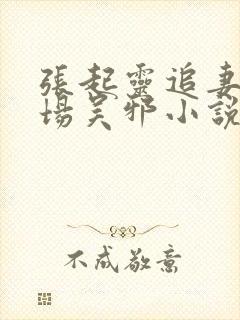 張起靈追妻
場吴邪小說
不成敬意